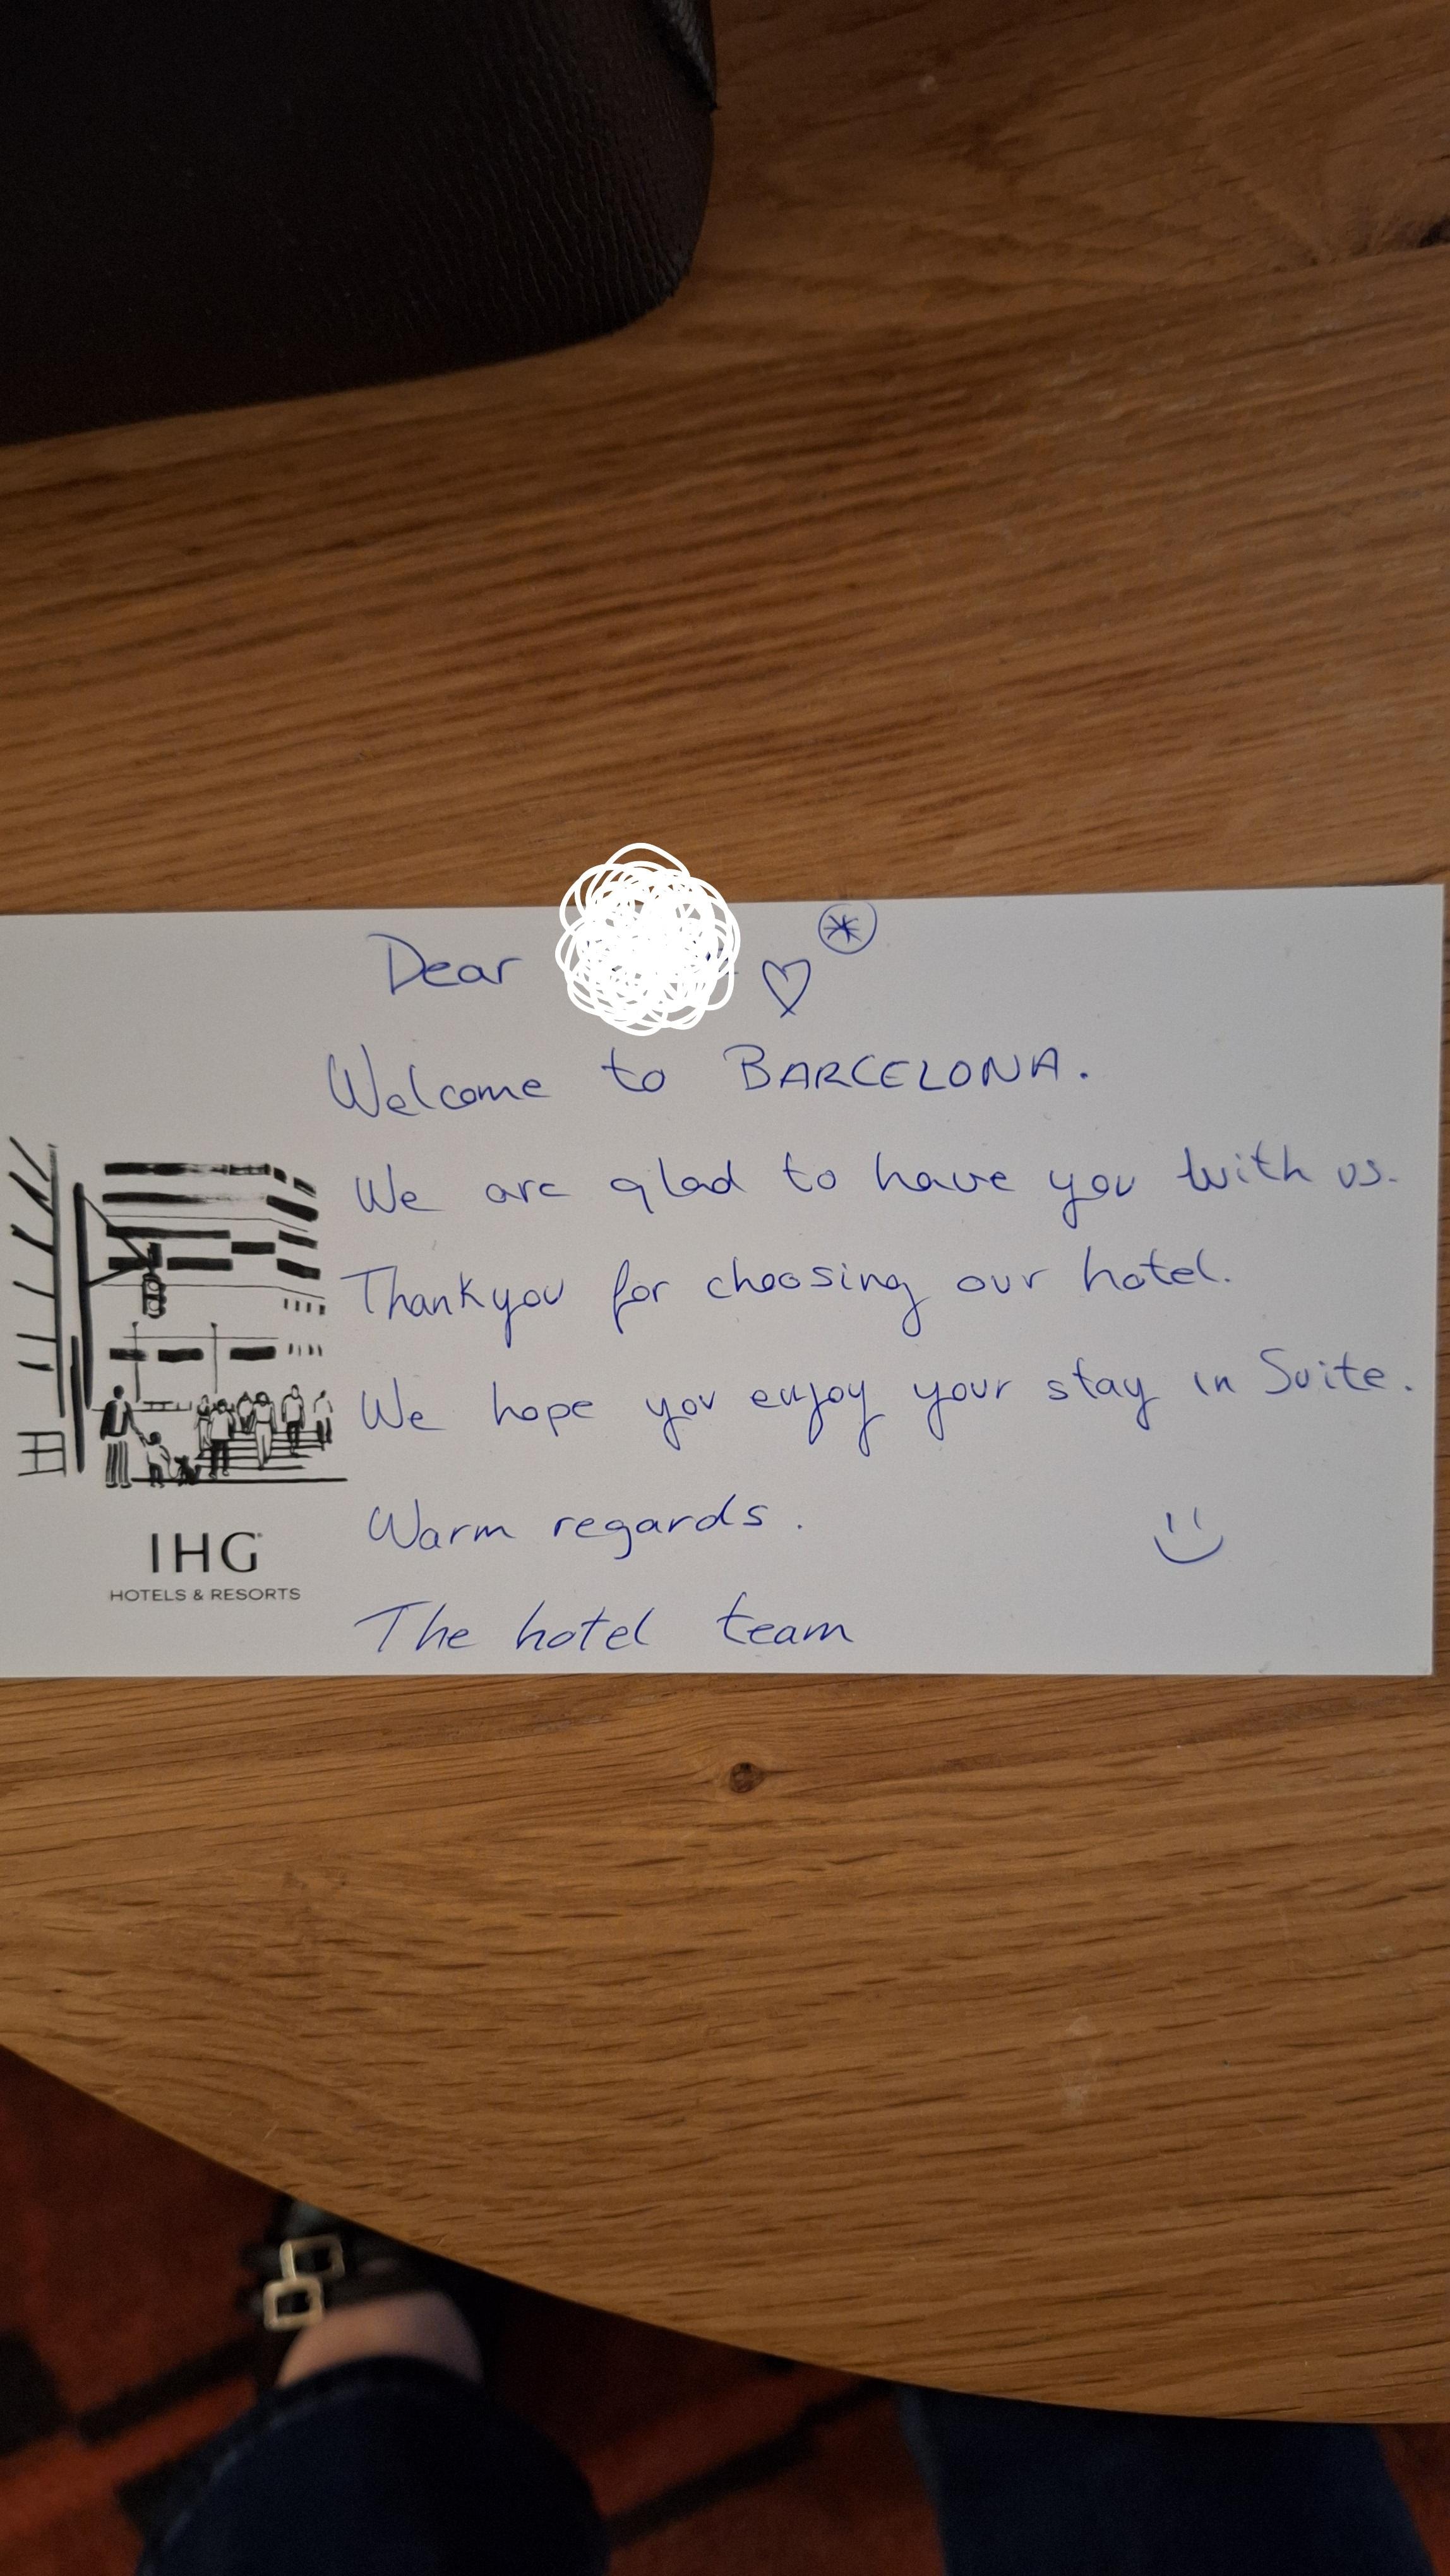 Dear ♡ *
Welcome to BARCELONA.
We are glad to have you with us.
Thankyou for choosing our hotel.
We hope you enjoy your stay in Suite.
Warm regards.
The hotel team
IHG
HOTELS & RESORTS